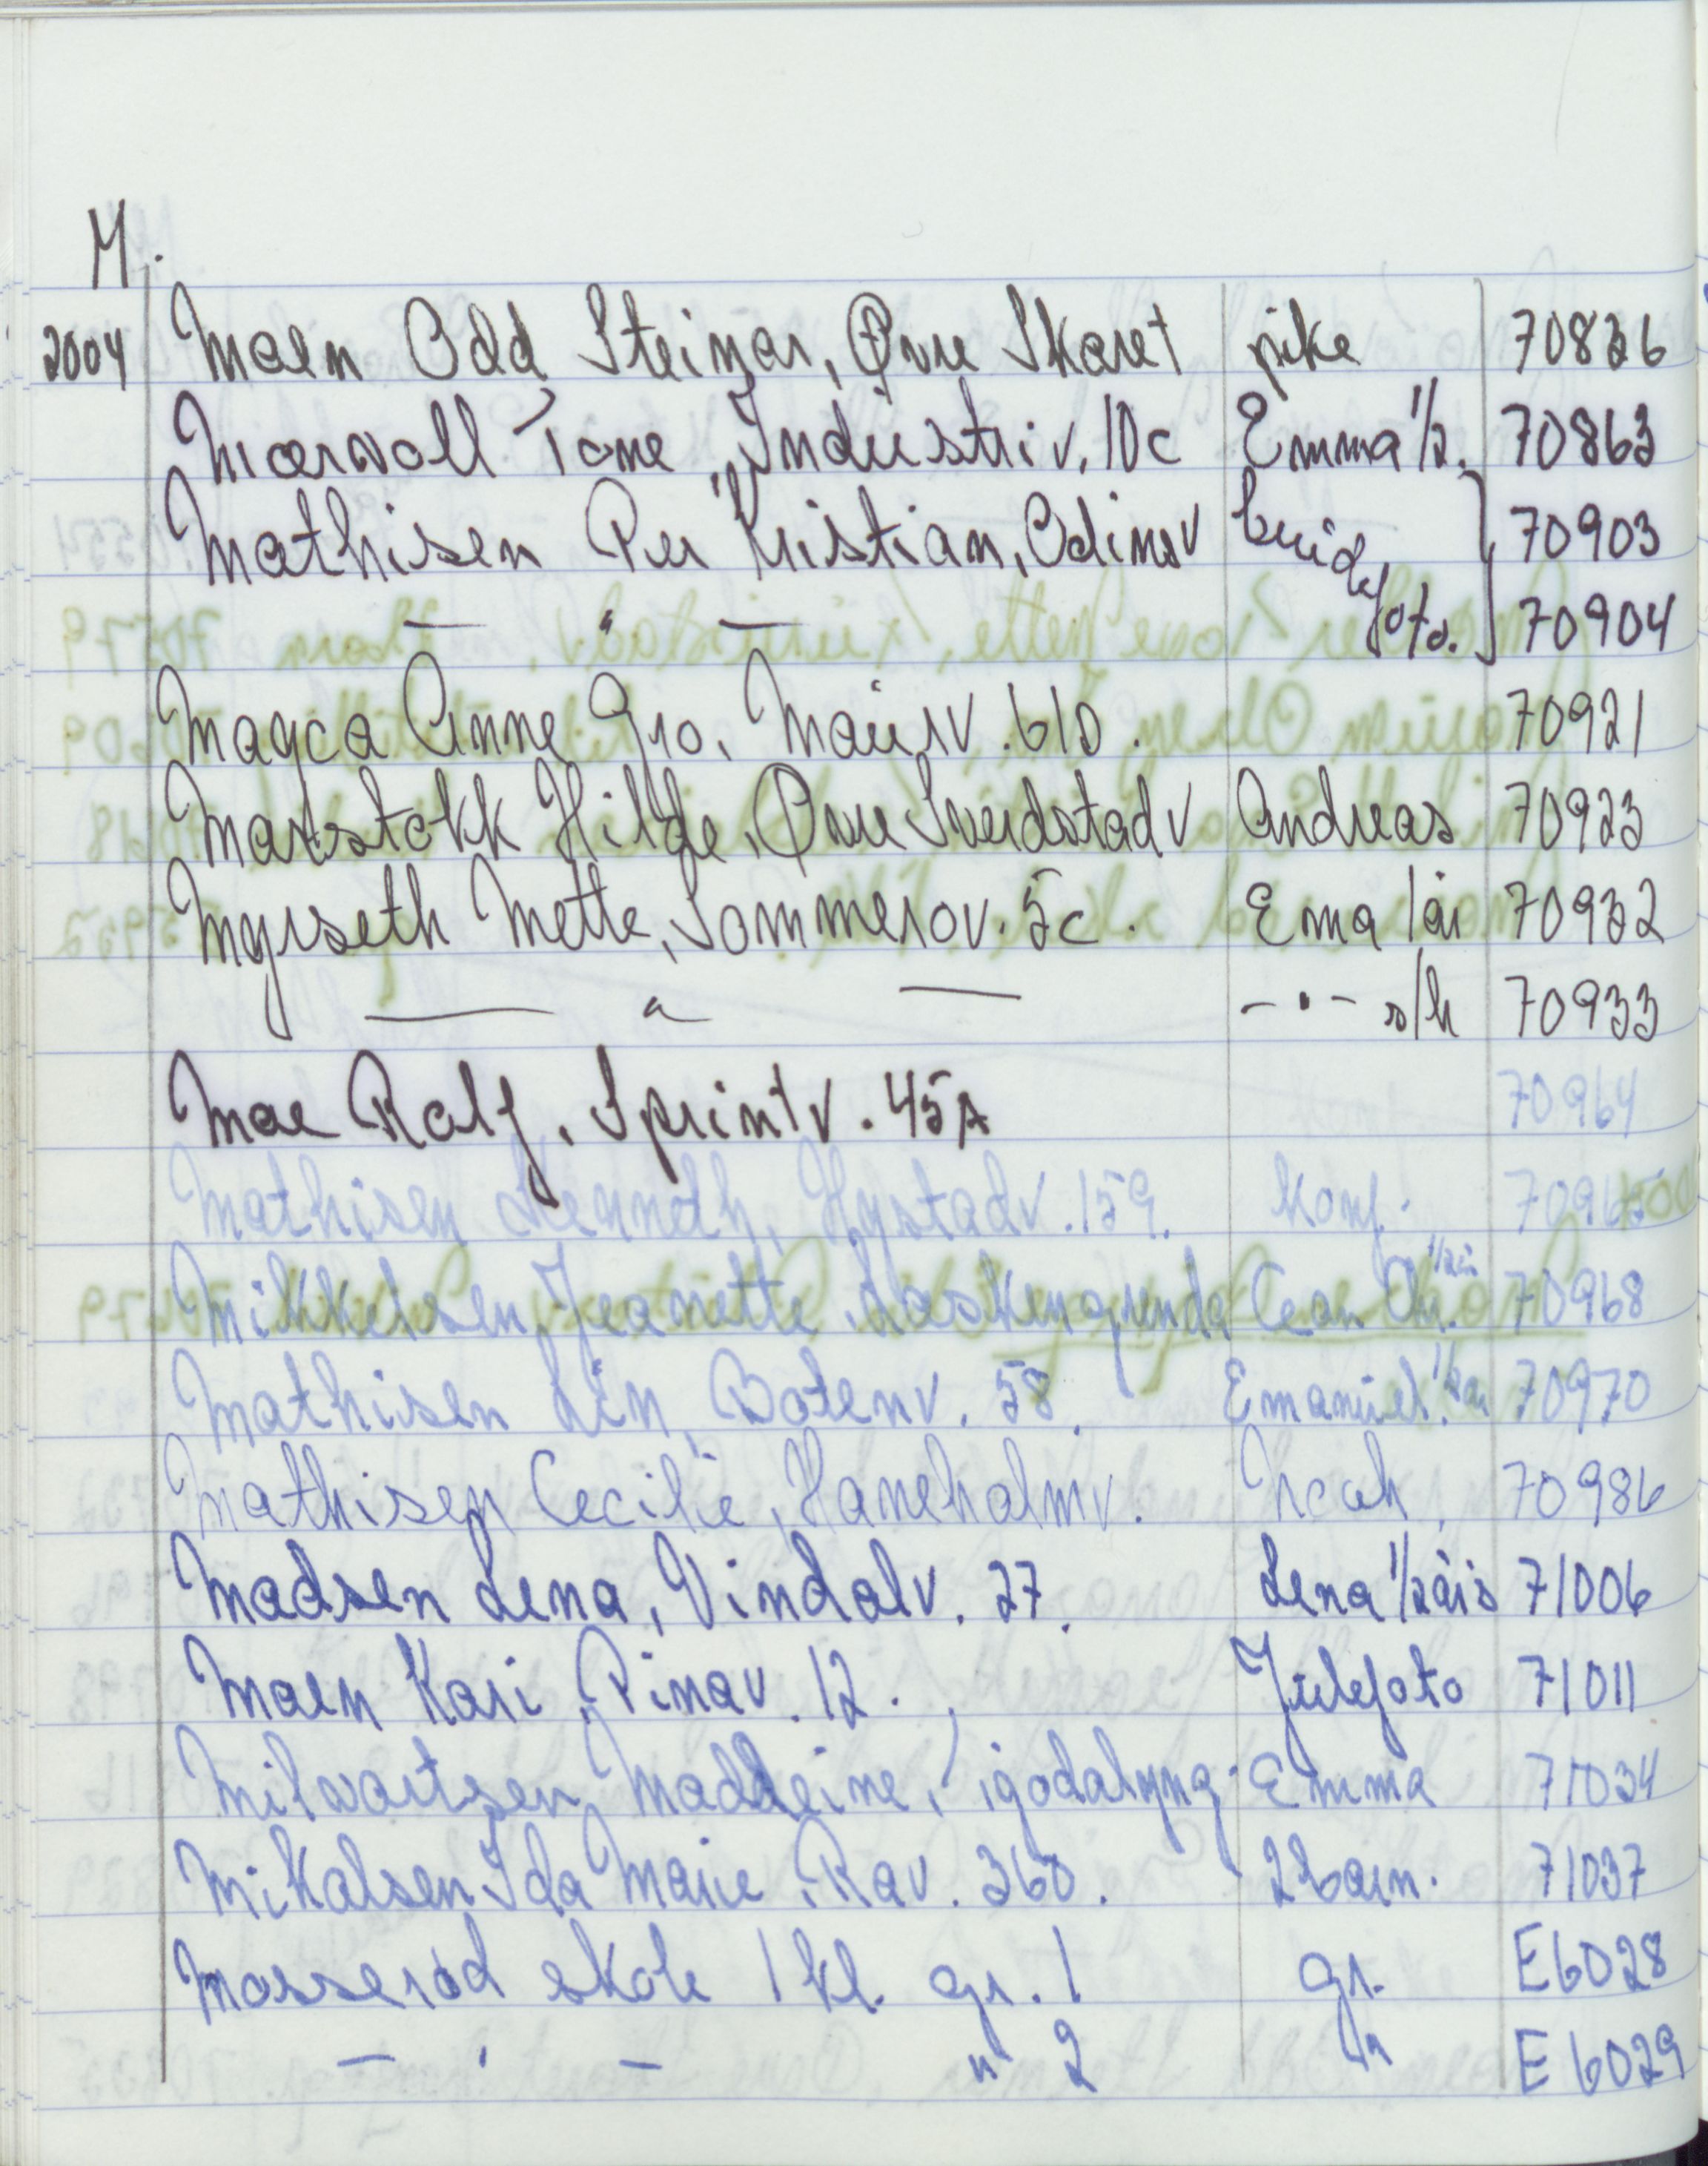 M.
2004 Moen Odd Steinar, Øvre Skaret pike 70826
Morvoll Tone, Industriv. 10c Emma 1/2. 70863
Mathisen Per Kristian, Odinsv brude 70903
— " — foto. 70904
Magca Anne Gro, Maurv. 61D. 70921
Markstokk Hilde, Øvre Sverdstadv Andreas 70923
Myrseth Mette, Sommerov. 5c. Ema 1 år 70932
— " — - " - s/h 70933
Moe Rolf, Sprintv. 45A 70964
Mathisen Kenneth, Nystadv. 159. Konf. 70965
Mikkelsen Jeanette, 1/2 år 70968
Mathisen Lin, Botenv. 58. Emanuel. 1/2 år 70970
Mathisen Cecilie, Haneholmv. Noah, 70986
Madsen Lena, Vindalv. 27. Lena 1/2 års 71006
Moen Kari, Pinav. 12. Julefoto 71011
Emma 71034
Mikalsen Ida Marie, Rav. 360. 2 barn. 71037
Mosserød skole 1 kl. gr. 1 gr. E6028
— " — " 2 " E6029